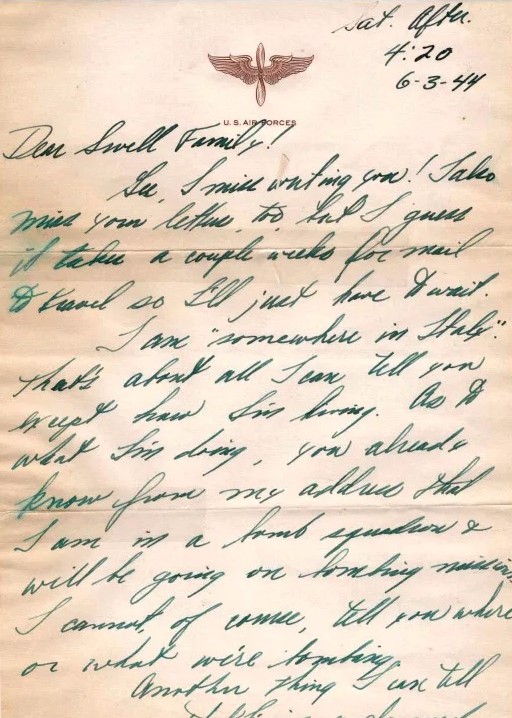 Sat. After.
4:20
6-3-44
U.S. AIR FORCES
Dear Swell Family!
Gee, I miss writing you! I also
miss your letters, to, but I guess
it takes a couple weeks for mail
to travel so I'll just have to wait.
I am "somewhere in Italy".
That's about all I can tell you
except how I'm living. As to
what I'm doing, you already
know from my address that
I am in a bomb squadron &
will be going on bombing missions.
I cannot, of course, tell you where
or what we're bombing.
Another thing I can tell